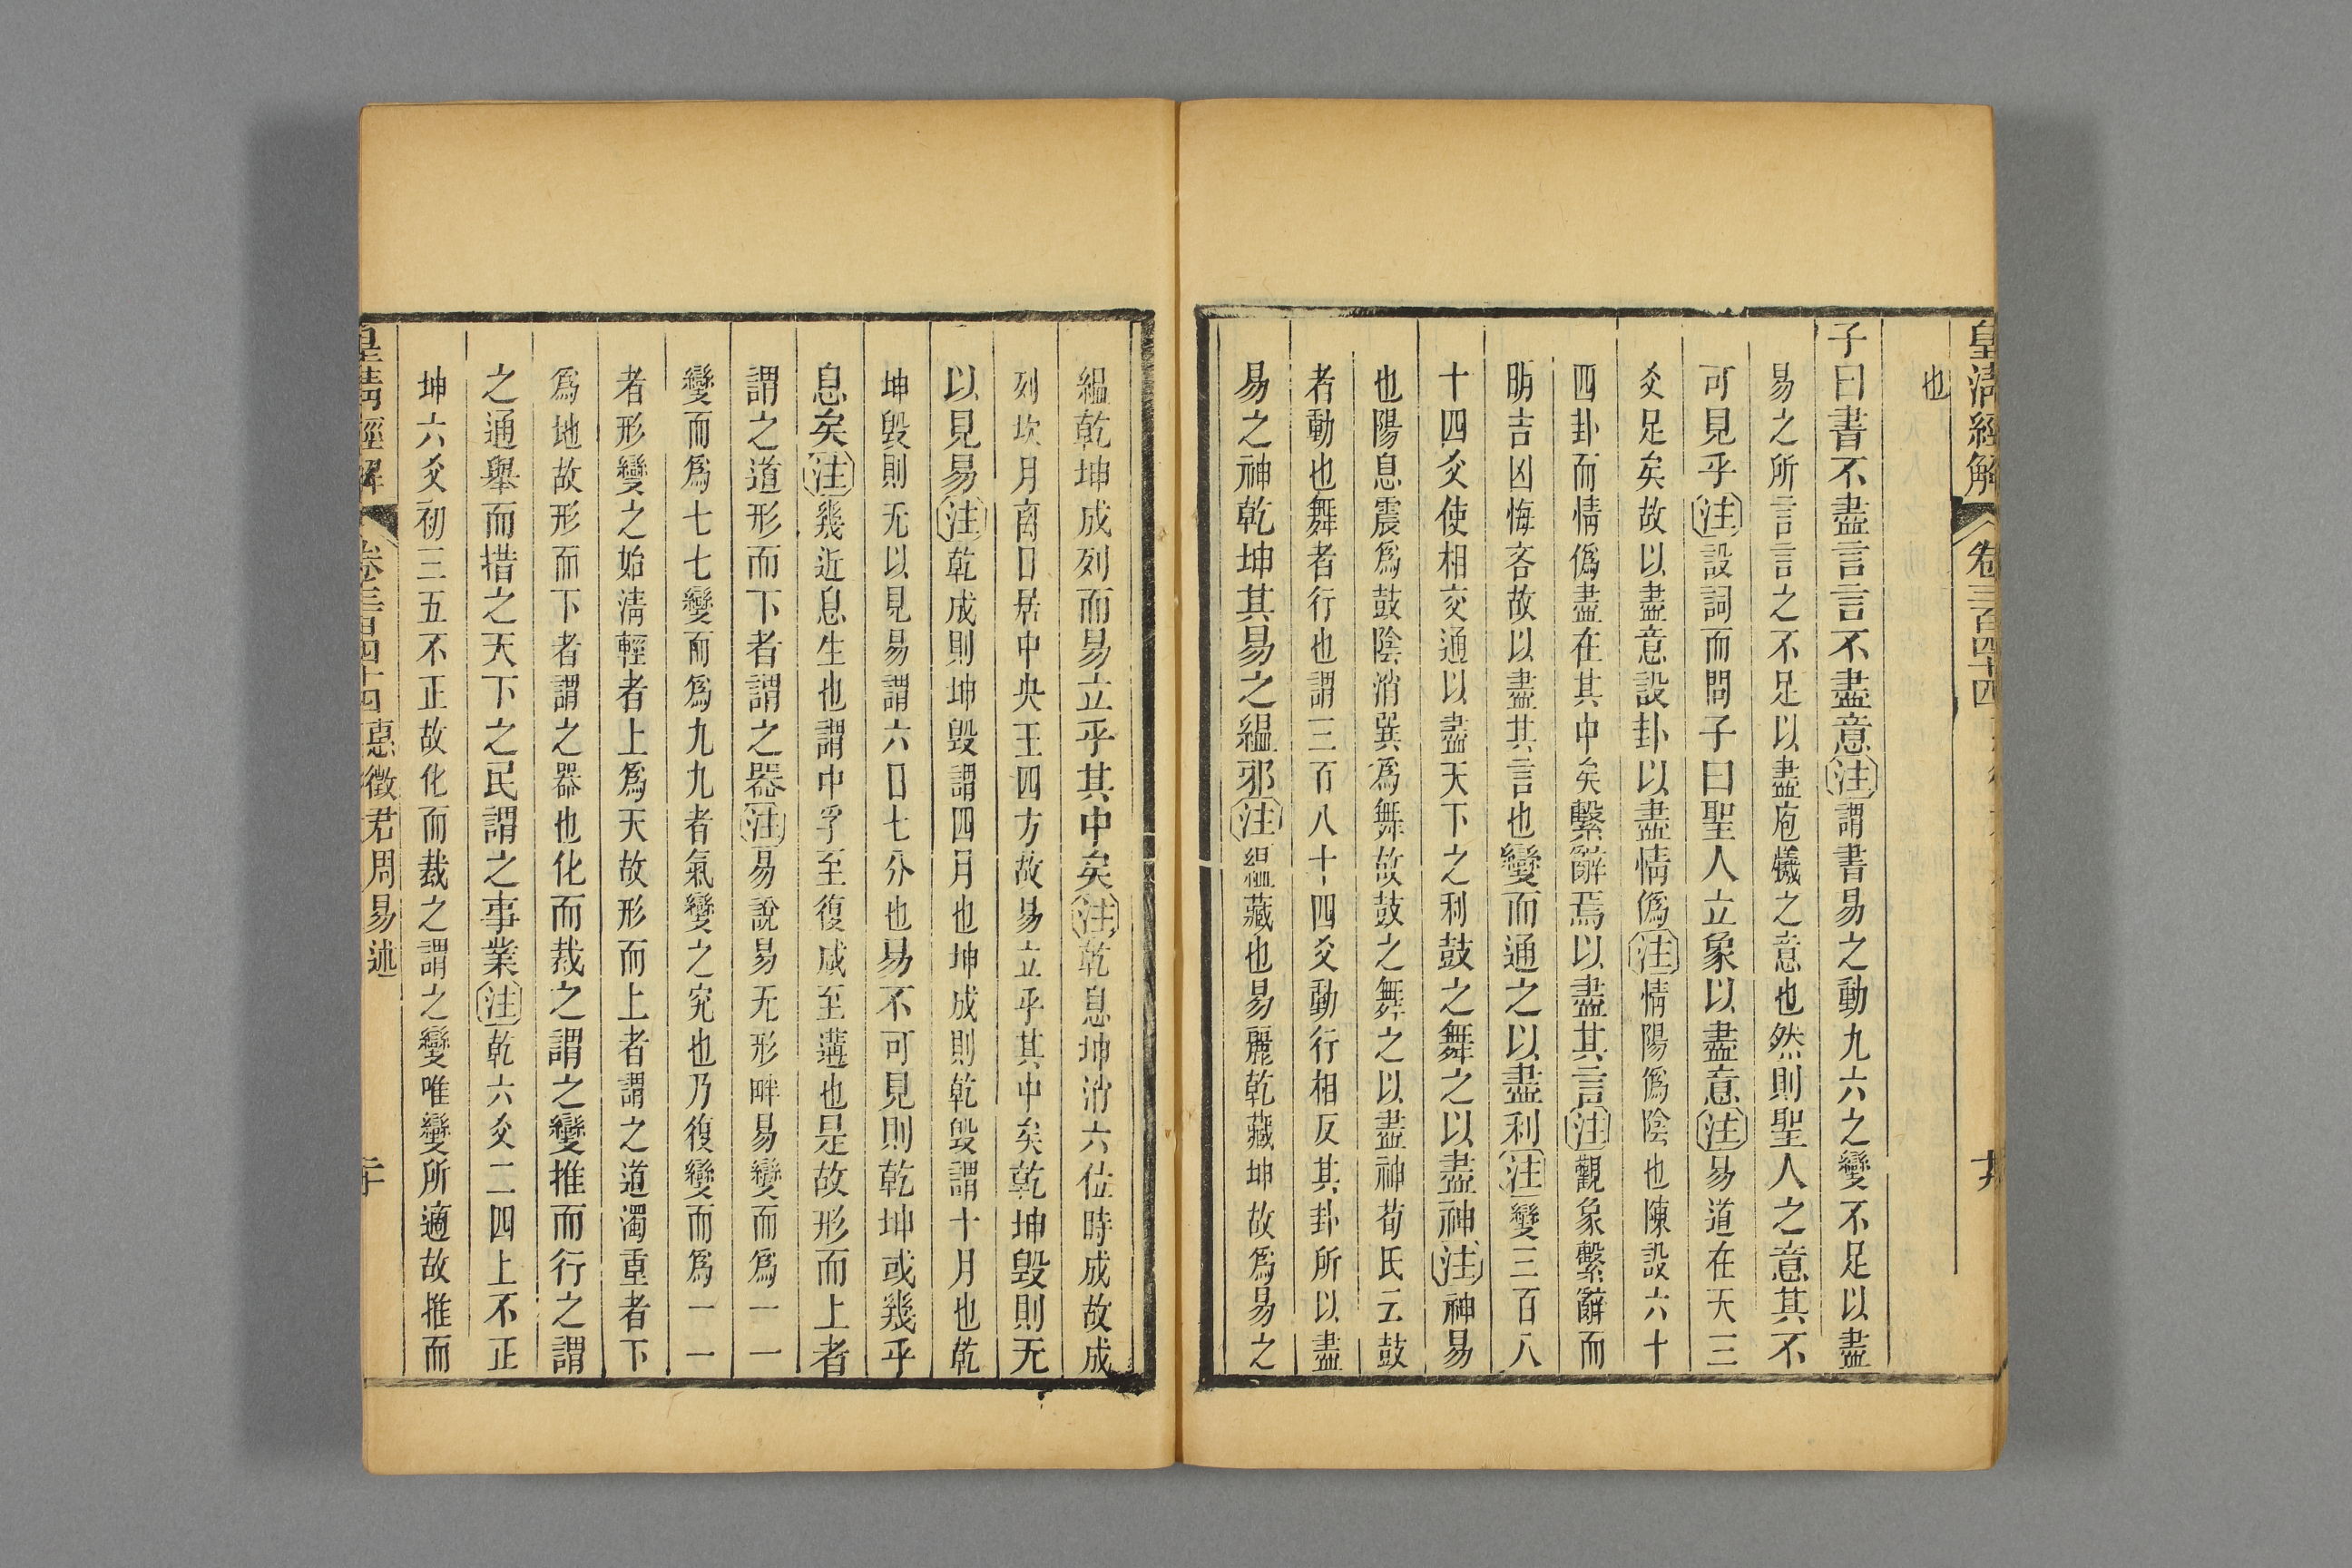 皇淸經解 卷三百四十四
也
子曰書不盡言言不盡意注謂書易之動九六之變不足以盡
易之所言言之不足以盡庖犧之意也然則聖人之意其不
可見乎注設詞而問子曰聖人立象以盡意注易道在天三
爻足矣故以盡意設卦以盡情僞注情陽僞陰也陳設六十
四卦而情僞盡在其中矣繫辭焉以盡其言注觀象繫辭而
明吉凶悔吝故以盡其言也變而通之以盡利注變三百八
十四爻使相交通以盡天下之利鼓之舞之以盡神注神易
也陽息震爲鼓陰消巽爲舞故鼓之舞之以盡神荀氏云鼓
者動也舞者行也謂三百八十四爻動行相反其卦所以盡
易之神乾坤其易之縕邪注縕藏也易麗乾藏坤故爲易之
縕乾坤成列而易立乎其中矣注乾息坤消六位時成故成
列坎月离日居中央王四方故易立乎其中矣乾坤毀則无
以見易注乾成則坤毀謂四月也坤成則乾毀謂十月也乾
坤毀則无以見易謂六日七分也易不可見則乾坤或幾乎
息矣注幾近息生也謂中孚至復咸至遘也是故形而上者
謂之道形而下者謂之器注易說易无形畔易變而爲一一
變而爲七七變而爲九九者氣變之究也乃復變而爲一一
者形變之始淸輕者上爲天故形而上者謂之道濁重者下
爲地故形而下者謂之器也化而裁之謂之變推而行之謂
之通舉而措之天下之民謂之事業注乾六爻二四上不正
坤六爻初三五不正故化而裁之謂之變唯變所適故推而
皇淸經解 卷三百四十四惠徵君周易述 二十